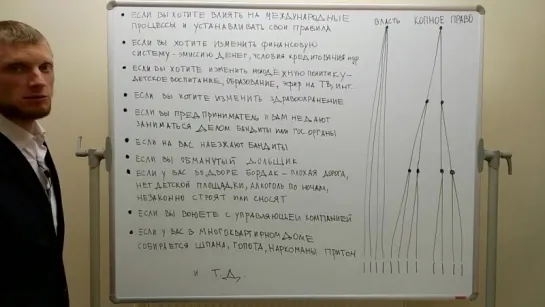 ЕСЛИ ВЫ ХОТИТЕ ВЛИЯТЬ НА МЕЖДУНАРОДНЫЕ
ПРОЦЕССЫ И УСТАНАВЛИВАТЬ СВОИ ПРАВИЛА
ЕСЛИ ВЫ ХОТИТЕ ИЗМЕНИТЬ ФИНАНСОВУЮ
СИСТЕМУ - ЭМИССИЮ ДЕНЕГ, УСЛОВИЯ КРЕДИТОВАНИЯ
ЕСЛИ ВЫ ХОТИТЕ ИЗМЕНИТЬ МОЛОДЕЖНУЮ ПОЛИТИКУ -
ДЕТСКОЕ ВОСПИТАНИЕ, ОБРАЗОВАНИЕ, ЭФИР НА ТВ, ИНТ.
ЕСЛИ ВЫ ХОТИТЕ ИЗМЕНИТЬ ЗДРАВООХРАНЕНИЕ
ЕСЛИ ВЫ ПРЕДПРИНИМАТЕЛЬ И ВАМ НЕ ДАЮТ
ЗАНИМАТЬСЯ ДЕЛОМ БАНДИТЫ ИЛИ ГОС ОРГАНЫ
ЕСЛИ НА ВАС НАЕЗЖАЮТ БАНДИТЫ
ЕСЛИ ВЫ ОБМАНУТЫЙ ДОЛЬЩИК
ЕСЛИ У ВАС ВО ДВОРЕ БОРДАК - ПЛОХАЯ ДОРОГА,
НЕТ ДЕТСКОЙ ПЛОЩАДКИ, АЛКОГОЛЬ ПО НОЧАМ,
НЕЗАКОННО СТРОЯТ ИЛИ СНОСЯТ
ЕСЛИ ВЫ ВОЮЕТЕ С УПРАВЛЯЮЩЕЙ КОМПАНИЕЙ
ЕСЛИ У ВАС В МНОГОКВАРТИРНОМ ДОМЕ
СОБИРАЕТСЯ ШПАНА, ГОПОТА, НАРКОМАНЫ, ПРИТОН
И Т.Д.
ВЛАСТЬ КОПНОЕ ПРАВО